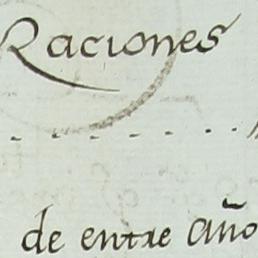 Raciones
de entre Año